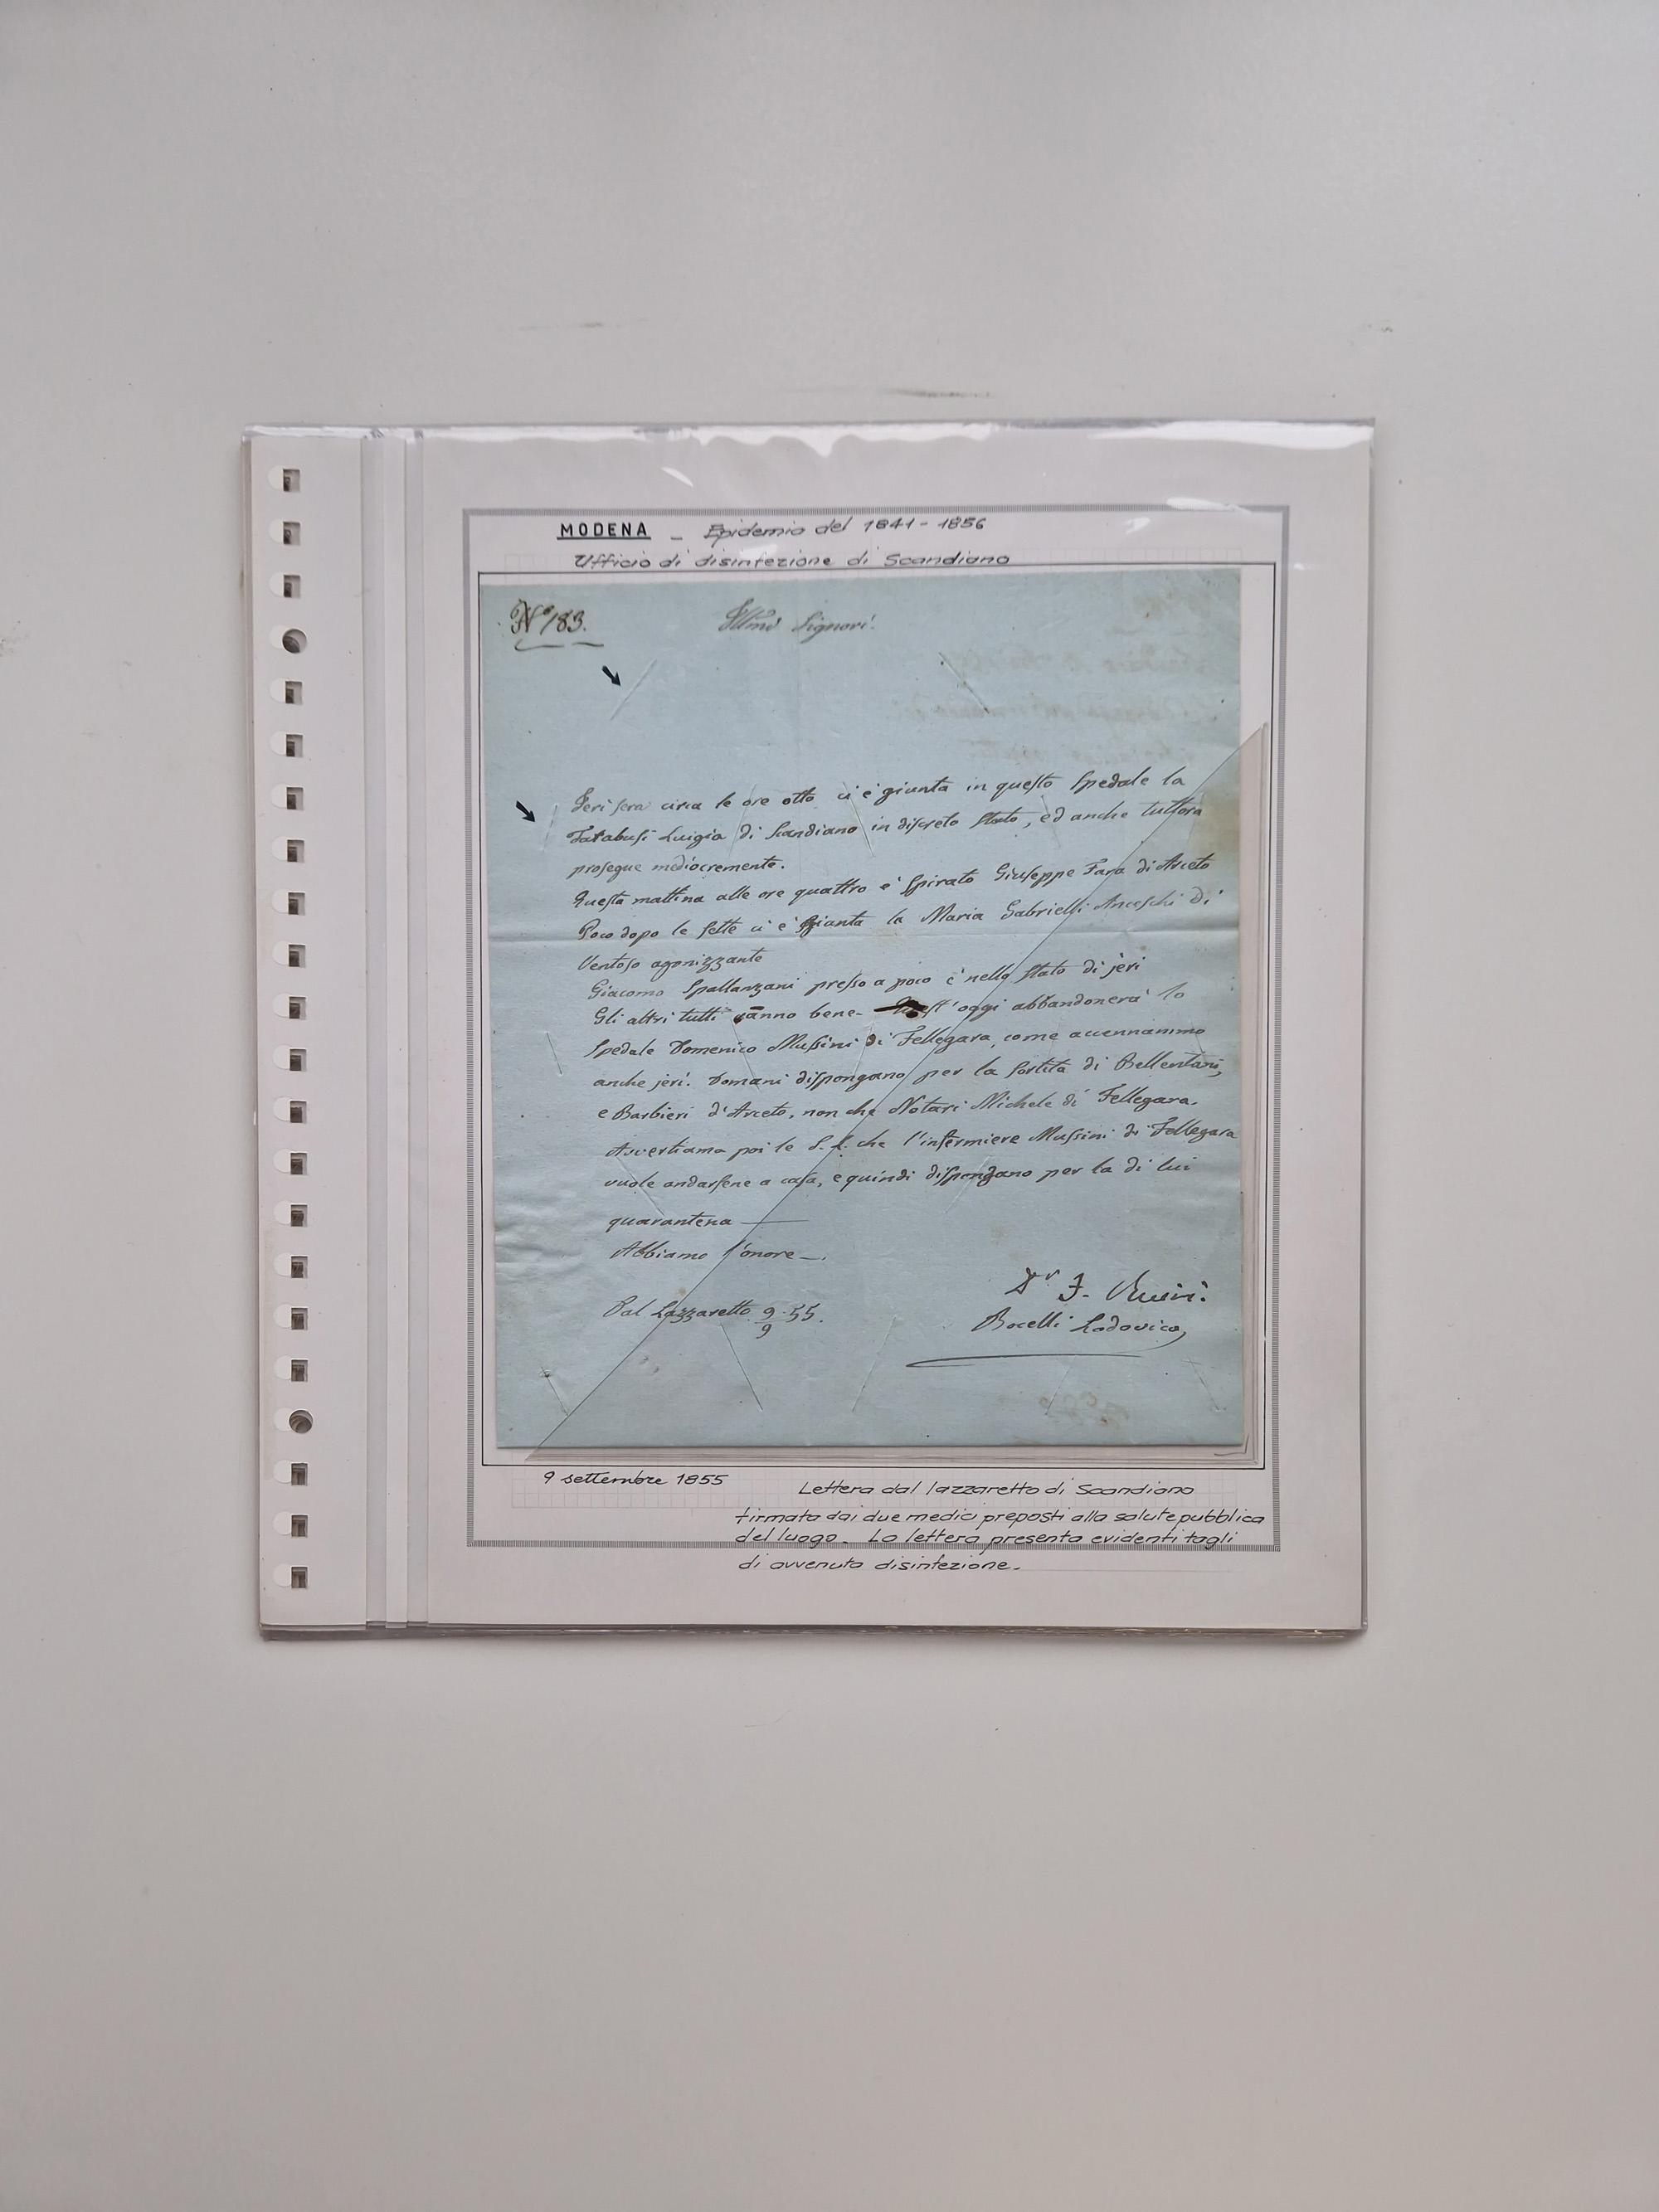 MODENA - Epidemia del 1841-1856
Ufficio di disinfezione di Scandiano
N° 183.
Illmi Signori.
Jeri sera circa le ore otto ci è giunta in questo Spedale la
Luigia di Scandiano in discreto stato, ed anche tuttora
prosegue mediocremente.
Questa mattina alle ore quattro è spirato Giuseppe Fara di Arceto
Poco dopo le sette ci è giunta la Maria Gabrielli Anceschi di
Ventoso agonizzante
Giacomo Spallanzani presso a poco è nello stato di jeri
Gli altri tutti vanno bene- oggi abbandonerà lo
Spedale Domenico Mussini di Fellegara, come accennammo
anche jeri. Domani dispongano per la sortita di Bellentani,
e Barbieri d'Arceto, non che Notari Michele di Fellegara.
Avvertiamo poi le S.L. che l'infermiere Mussini di Fellegara
vuole andarsene a casa, e quindi dispongano per la di lui
quarantena —
Abbiamo l'onore —.
Dal Lazzaretto 9/9 55.
Dr F.
Bocelli Lodovico
9 settembre 1855
Lettera dal lazzaretto di Scandiano
firmata dai due medici preposti alla salute pubblica
del luogo. La lettera presenta evidenti tagli
di avvenuta disinfezione.